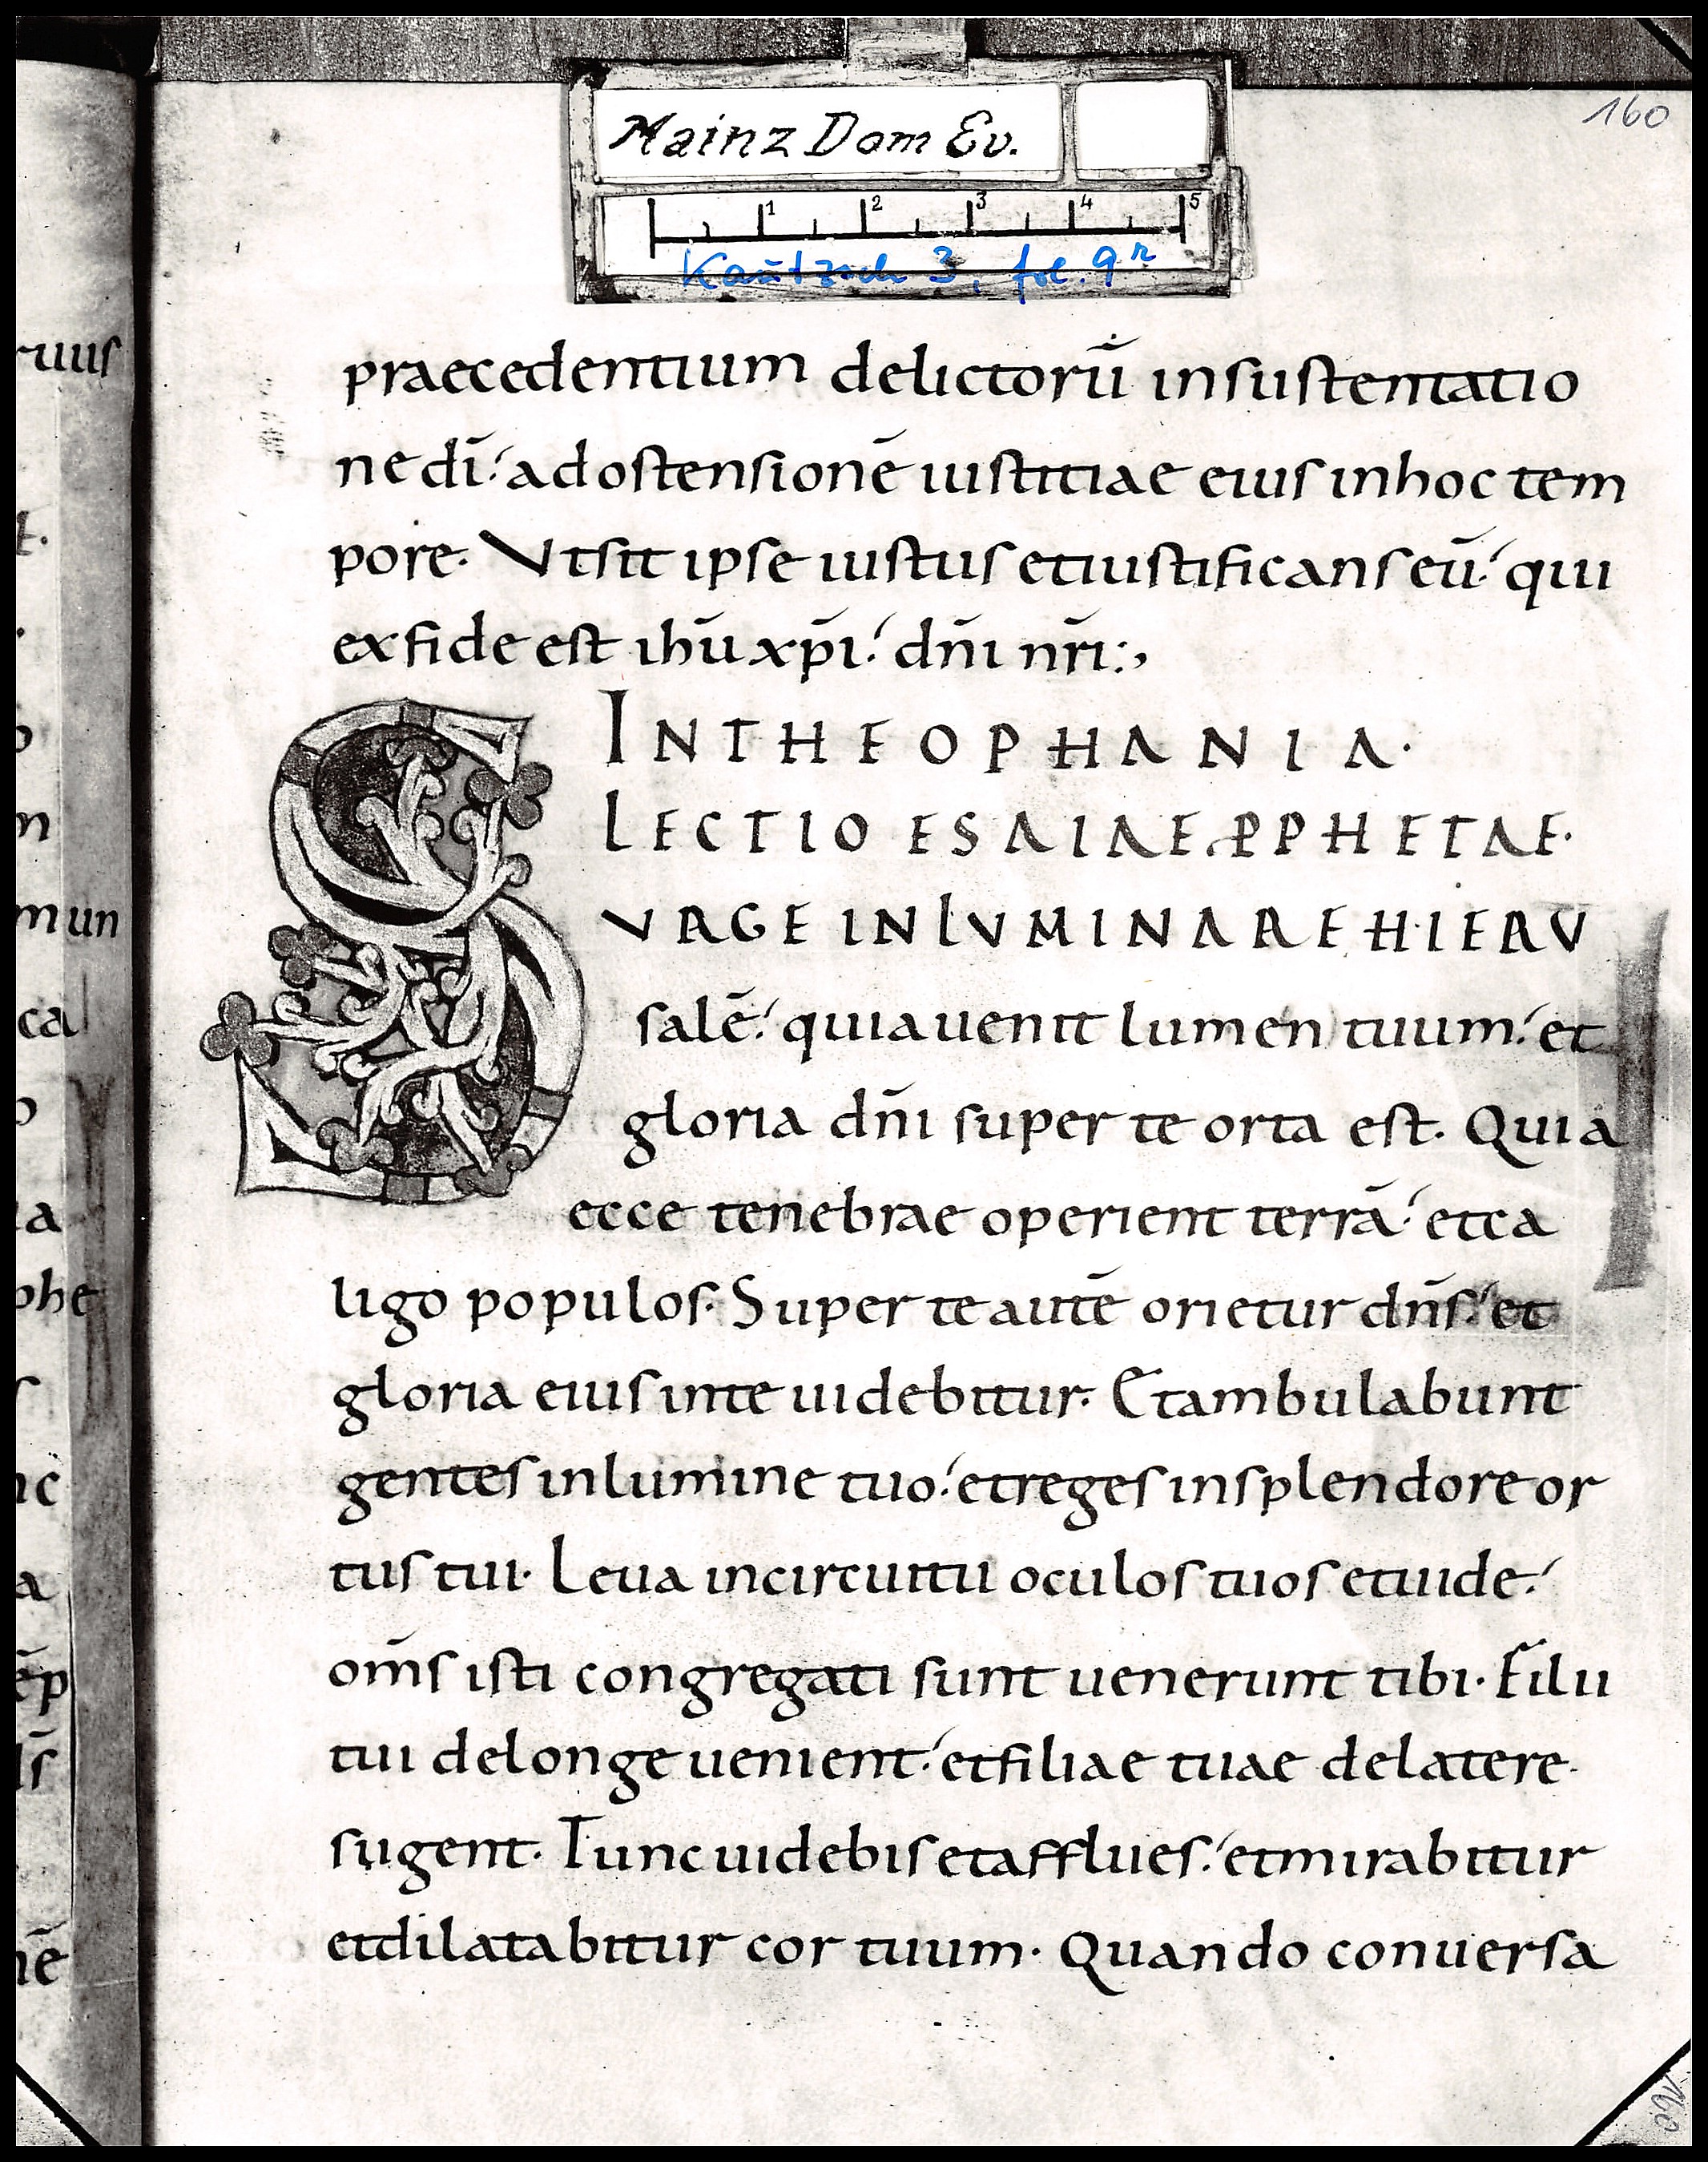 160
Mainz Dom Ev.
1 2 3 4 5
Kautzsch 3, fol. 9r
praecedentium delictorū insustentatio
ne dī. adostensionē iustitiae eius inhoc tem
pore. Vtsit ipse iustus etiustificans eū. qui
exfide est ihū xp̄i. dn̄i nr̄i:,
INTHEOPHANIA.
LECTIO ESAIAE PPHETAE.
SVRGE INLVMINARE HIERV
salē. quiauenit lumen tuum. et
gloria dn̄i super te orta est. Quia
ecce tenebrae operient terrā. etca
ligo populos. Super te autē orietur dn̄s. et
gloria eius inte uidebitur. Etambulabunt
gentes inlumine tuo. etreges insplendore or
tus tui. Leua incircuitu oculos tuos etuide.
om̄s isti congregati sunt uenerunt tibi. Filii
tui delonge uenient. etfiliae tuae delatere
sugent. Tunc uidebis etafflues. etmirabitur
etdilatabitur cor tuum. Quando conuersa
ruus
t.
o
n
mun
ca
o
ta
phe
s
nc
a
ēp
ls̄
nē
160